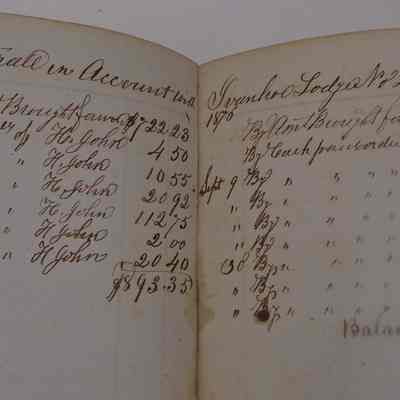 in Account with
Brought forward $722.23
of H. John 4 50
" H. John 10 55
" H. John 20 92
" H. John 112 75
" H. John 2.00
" H John 20 40
$893.35
Ivanhoe Lodge No
1870
By Amt Brought
By Cash paid order
Sept 9 By " "
" By " "
" By " "
" By " "
30 By " "
" By " "
" By " "
Bala